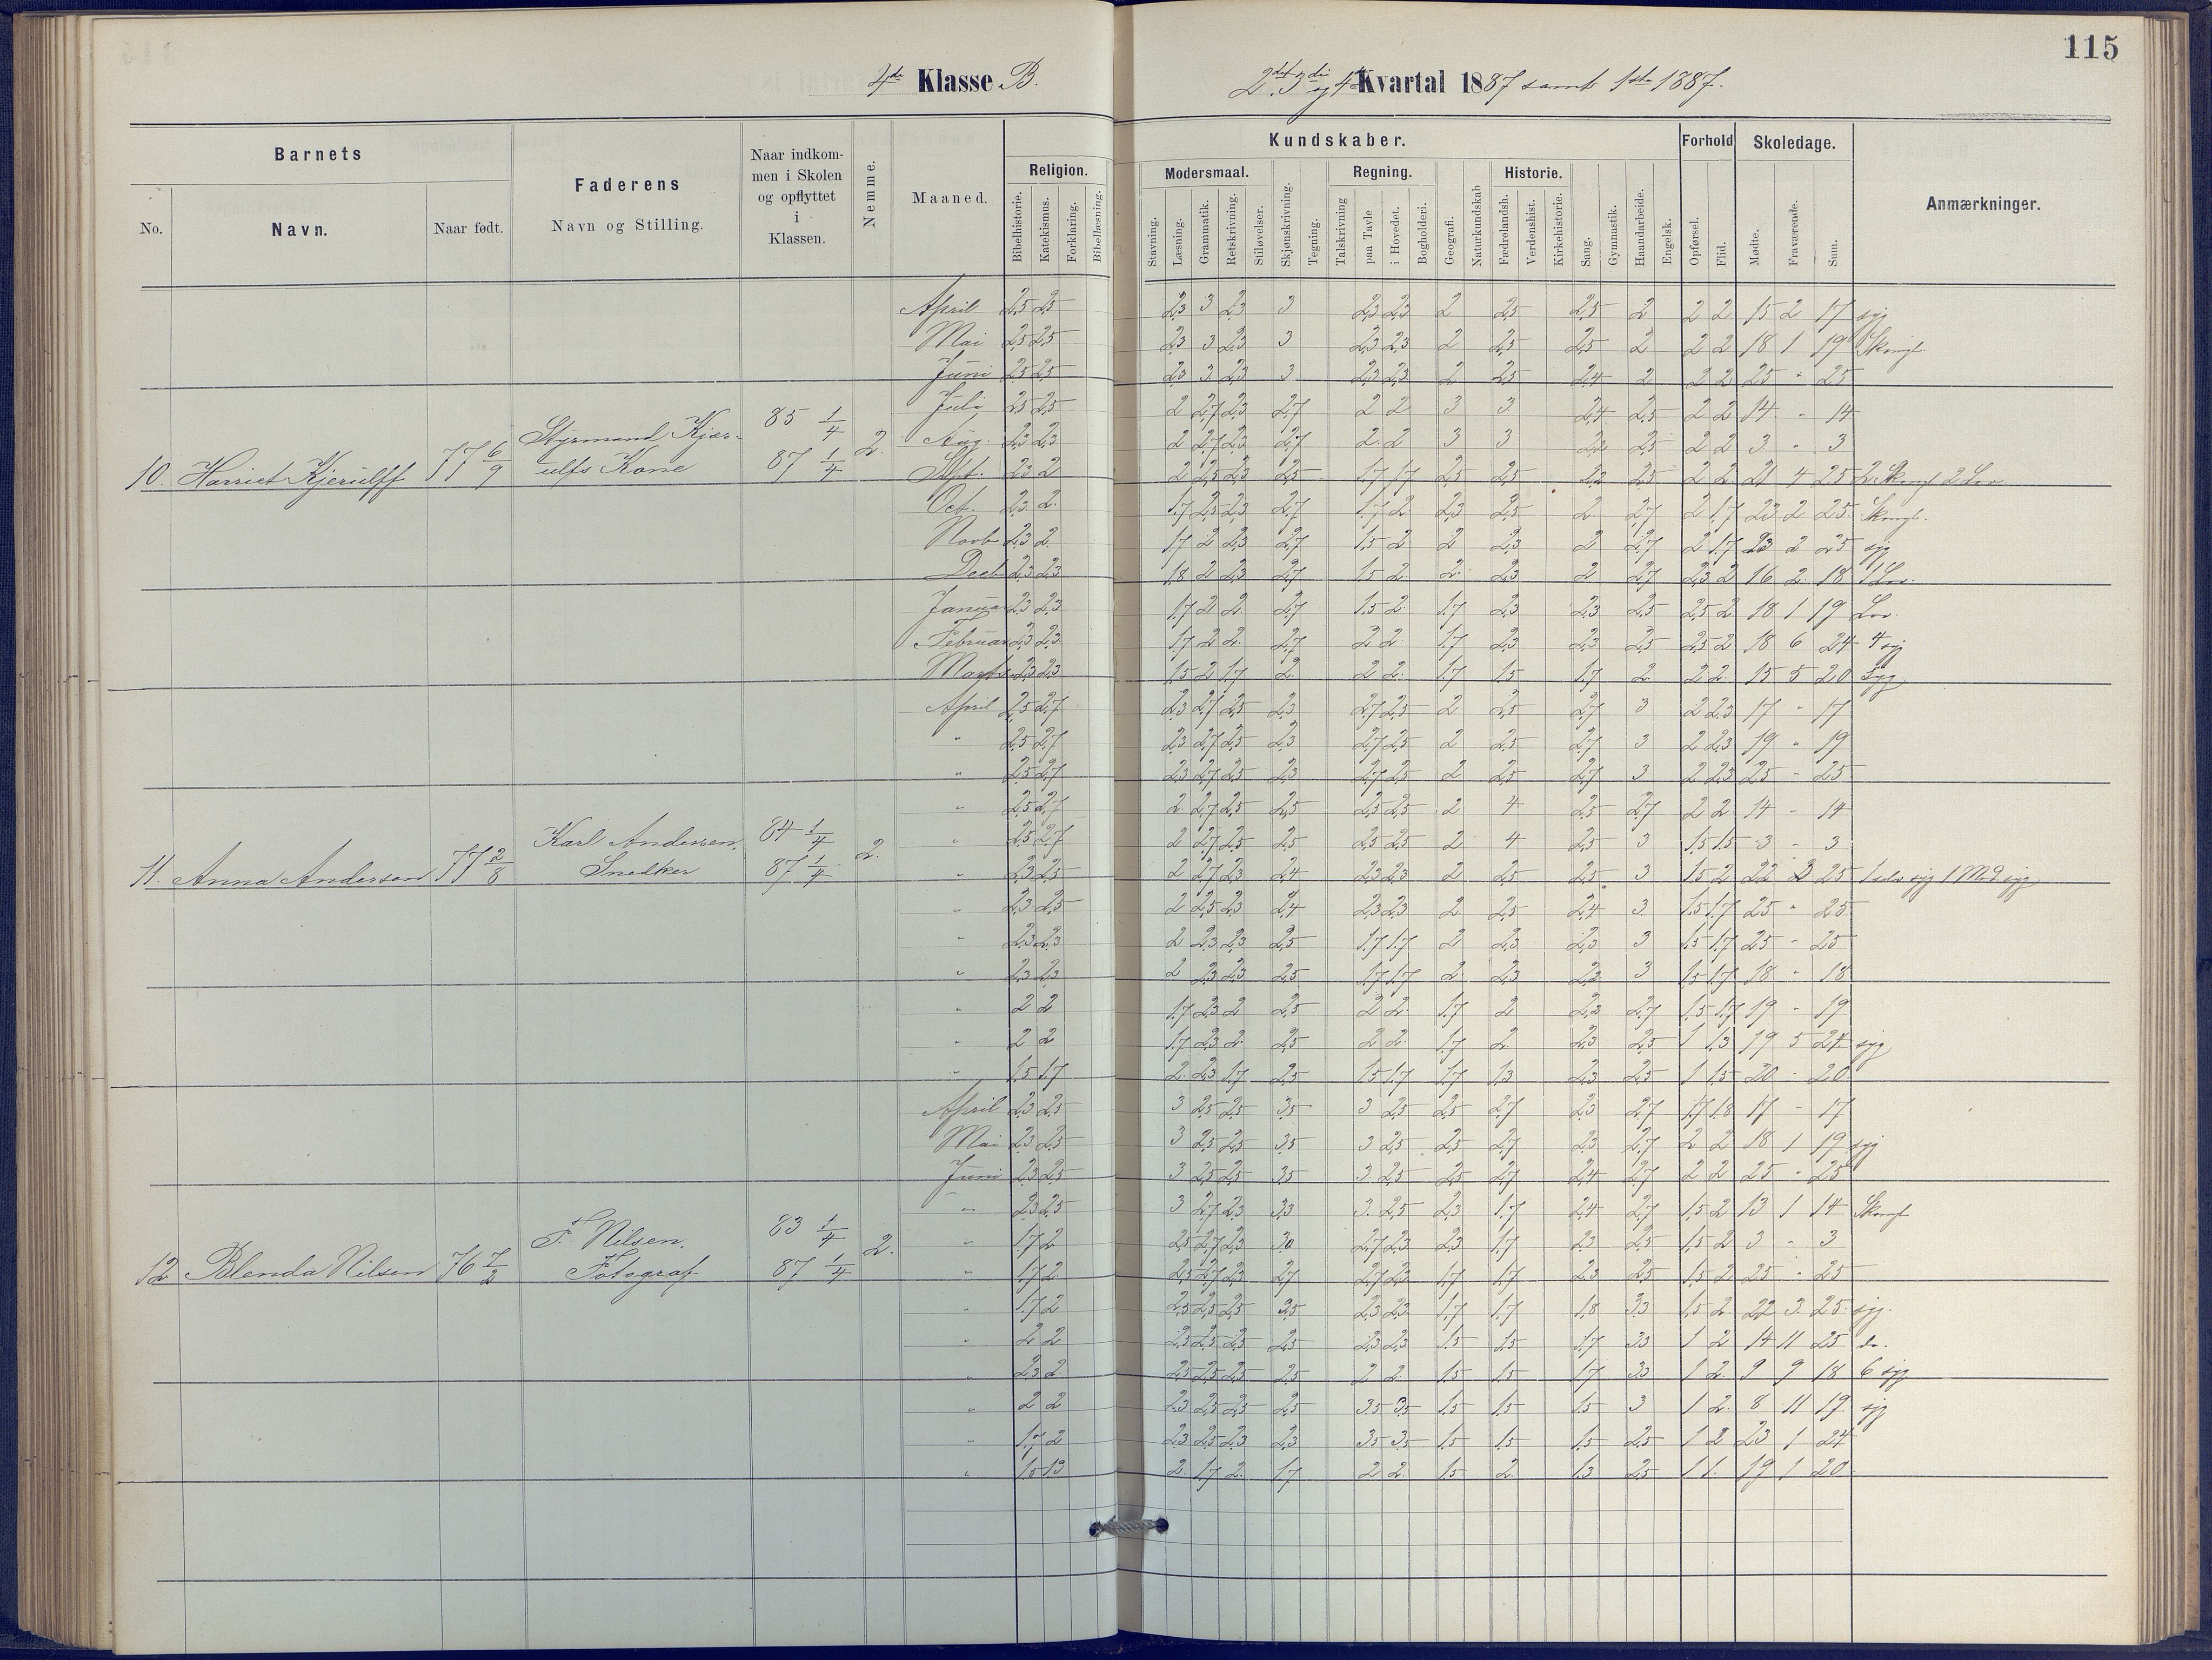 115
4de Klasse B.
2det 3die og 4de Kvartal 1887 samt 1ste 1887.
Barnets
No.
Navn.
Naar født.
Faderens
Navn og Stilling.
Naar indkom-
men i Skolen
og opflyttet
i
Klassen.
Nemme.
Maaned.
Kundskaber.
Religion.
Bibelhistorie.
Katekismus.
Forklaring.
Bibellæsning.
Modersmaal.
Stavning.
Læsning.
Grammatik.
Retskrivning.
Stiløvelser.
Skjønskrivning.
Tegning.
Regning.
Talskrivning
paa Tavle
i Hovedet.
Bogholderi.
Geografi.
Naturkundskab
Historie.
Fædrelandsh.
Verdenshist.
Kirkehistorie.
Sang.
Gymnastik.
Haandarbeide.
Engelsk.
Forhold
Opførsel.
Flid.
Skoledage.
Mødte.
Fraværende.
Sum.
Anmærkninger.
April 2,5 2,5 2,3 3 2,3 3 2,3 2,3 2 2,5 2,5 2 2 2 15 2 17 syg
Mai 2,5 2,5 2,3 3 2,3 3 2,3 2,3 2 2,5 2,5 2 2 2 18 1 19
Juni 2,5 2,5 2,3 3 2,3 3 2,3 2,3 2 2,5 2,4 2 2 2 25 " 25
Juli 2,5 2,5 2 2,7 2,3 2,7 2 2 3 3 2,4 2,5 2 2 14 " 14
10. Harriet Kjerulff 77 6/9 Styrmand Kjær-
ulfs Kone 85 1/4
87 1/4 2.
Aug. 2,3 2,3 2 2,7 2,3 2,7 2 2 3 3 2,5 2 2 3 " 3
Sept. 2,3 2 2 2,5 2,3 2,5 1,7 1,7 2,5 2,5 2,5 2 2 21 4 25
Oct. 2,3 2 1,7 2,5 2,3 2,7 1,7 2 2,3 2,5 2 2,7 2 1,7 23 2 25
Novb 2,3 2 1,7 2 2,3 2,7 1,5 2 2 2,3 2 2,7 2 1,7 23 2 25 syg
Decb 2,3 2,3 1,8 2 2,3 2,7 1,5 2 2 2,3 2 2,7 2,3 2 16 2 18
Januar 2,3 2,3 1,7 2 2 2,7 1,5 2 1,7 2,3 2,3 2,5 2,5 2 18 1 19
Februar 2,3 2,3 1,7 2 2 2,7 2 2 1,7 2,3 2,3 2,5 2,5 2 18 6 24 4 syg
Marts 2,3 2,3 1,5 2 1,7 2 2 2 1,7 1,5 1,7 2 2 2 15 5 20 syg
April 2,5 2,7 2,3 2,7 2,5 2,3 2,7 2,5 2 2,5 2,7 3 2 2,3 17 " 17
" 2,5 2,7 2,3 2,7 2,5 2,3 2,7 2,5 2 2,5 2,7 3 2 2,3 19 " 19
" 2,5 2,7 2,3 2,7 2,5 2,3 2,7 2,5 2 2,5 2,7 3 2 2,3 25 " 25
" 2,5 2,7 2 2,7 2,5 2,5 2,5 2,5 2 4 2,5 2,7 2 2 14 " 14
11. Anna Andersen 77 2/8 Karl Andersen,
Snedker 84 1/4
87 1/4 2.
" 2,5 2,7 2 2,7 2,5 2,5 2,5 2,5 2 4 2,5 3 1,5 1,5 3 " 3
" 2,3 2,5 2 2,7 2,3 2,4 2,3 2,3 2 2,5 2,5 3 1,5 2 22 3 25 1 selv syg 1 Mod. syg
" 2,3 2,5 2 2,5 2,3 2,4 2,3 2,3 2 2,5 2,4 3 1,5 1,7 25 " 25
" 2,3 2,3 2 2,3 2,3 2,5 1,7 1,7 2 2,3 2,3 3 1,5 1,7 25 " 25
" 2,3 2,3 2 2,3 2,3 2,5 1,7 1,7 2 2,3 2,3 3 1,5 1,7 18 " 18
" 2 2 1,7 2,3 2 2,5 2 2 1,7 2 2,3 2,7 1,5 1,7 19 " 19
" 2 2 1,7 2,3 2 2,5 2 2 1,7 2 2,3 2,5 1 1,3 19 5 24 syg
" 1,5 1,7 2 2,3 1,7 2,5 1,5 1,7 1,7 1,3 2,3 2,5 1 1,5 20 " 20
April 2,3 2,5 3 2,5 2,5 3,5 3 2,5 2,5 2,7 2,3 2,7 1,7 1,8 17 " 17
Mai 2,3 2,5 3 2,5 2,5 3,5 3 2,5 2,5 2,7 2,3 2,7 2 2 18 1 19 syg
Juni 2,3 2,5 3 2,5 2,5 3,5 3 2,5 2,5 2,7 2,4 2,7 2 2 25 " 25
" 2,3 2,5 3 2,7 2,3 3,3 3 2,5 2,3 1,7 2,4 2,7 1,5 2 13 1 14
12 Blenda Nilsen 76 7/2 F. Nilsen,
Fotograf 83 1/4
87 1/4 2.
" 1,7 2 2,5 2,7 2,3 2,7 2,3 2,3 1,7 2,3 2,5 1,5 2 3 " 3
" 1,7 2 2,5 2,7 2,3 2,7 2,7 2,3 1,7 1,7 2,3 2,5 1,5 2 25 " 25
" 1,7 2 2,5 2,5 2,5 2,3 2,3 1,7 1,7 1,8 3,3 1,5 2 22 3 25 syg.
" 2 2 2,5 2,5 2,5 2,5 2,3 2,3 1,5 1,5 1,7 3,3 1 2 14 11 25 do.
" 2,3 2 2,5 2,5 2,5 2,5 2 2 1,5 1,5 1,7 3,3 1 2 9 9 18 6 syg
" 2 2 2,3 2,5 2,5 2,5 3,5 3,5 1,5 1,5 1,5 3 1 2 8 11 19 syg
" 1,7 2 2,3 2,5 2,3 2,3 3,5 3,5 1,5 1,5 1,5 2,5 1 2 23 1 24
" 1,5 1,3 2 1,7 2 1,7 2 2 1,5 2 1,3 2,5 1 1 19 1 20